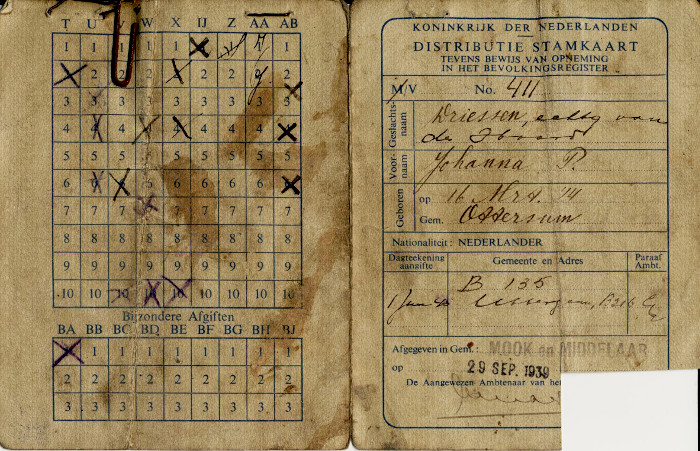 T U V W X IJ Z AA AB
1 1 1 1 1 1 1 1 1
2 2 2 2 2 2 2 2 2
3 3 3 3 3 3 3 3 3
4 4 4 4 4 4 4 4 4
5 5 5 5 5 5 5 5 5
6 6 6 6 6 6 6 6 6
7 7 7 7 7 7 7 7 7
8 8 8 8 8 8 8 8 8
9 9 9 9 9 9 9 9 9
10 10 10 10 10 10 10 10 10
Bijzondere Afgiften
BA BB BC BD BE BF BG BH BJ
1 1 1 1 1 1 1 1 1
2 2 2 2 2 2 2 2 2
3 3 3 3 3 3 3 3 3
KONINKRIJK DER NEDERLANDEN
DISTRIBUTIE STAMKAART
TEVENS BEWIJS VAN OPNEMING
IN HET BEVOLKINGSREGISTER
M/V No. 411
Geslachts-
naam
Driessen, echtg van
de
Voor-
naam
Johanna P.
Geboren
op 16 Mrt. 14
Gem. Ottersum
Nationaliteit: NEDERLANDER
Dagteekening
aangifte
Gemeente en Adres
Paraaf
Ambt.
B 135
Afgegeven in Gem.: MOOK en MIDDELAAR
op 29 SEP. 1939
De Aangewezen Ambtenaar van het